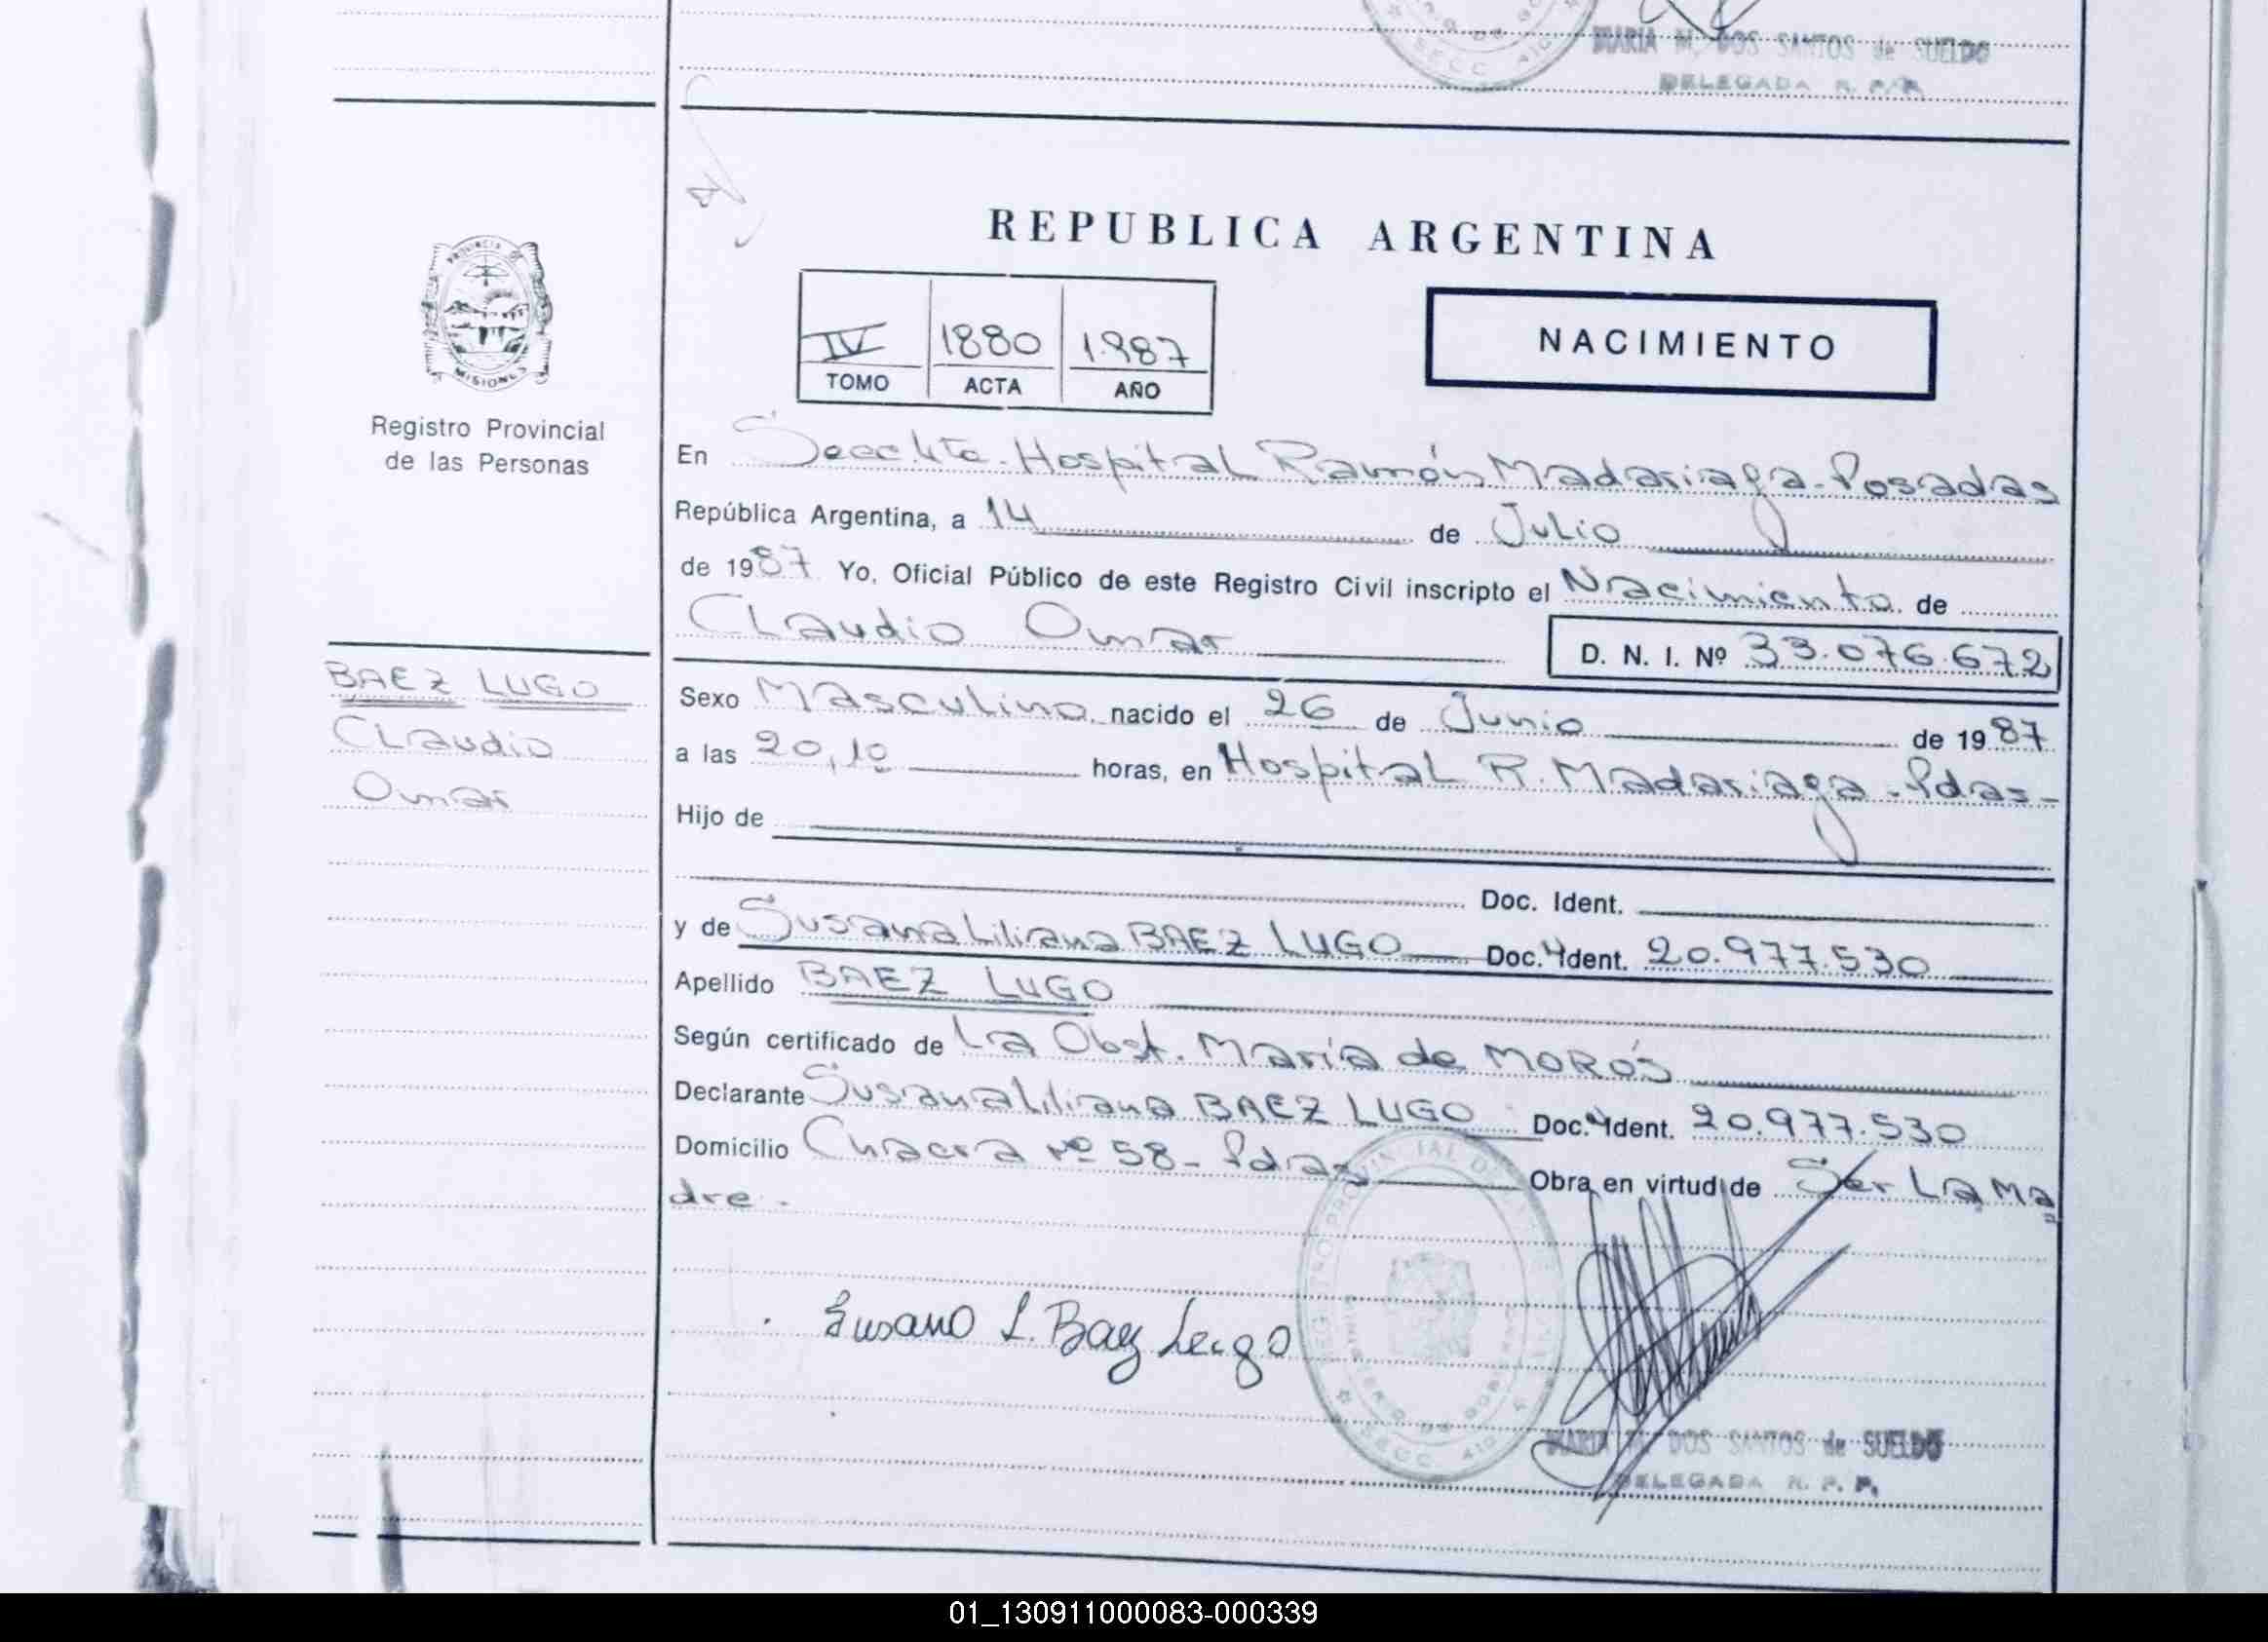 MARIA M. DOS SANTOS de SUELDO
DELEGADA R. P. P.
SECC.
REPUBLICA ARGENTINA
PROVINCIA DE
MISIONES
Registro Provincial
de las Personas
IV 1880 1.987
TOMO ACTA AÑO
NACIMIENTO
En Secc. 4ta. Hospital Ramón Madariaga - Posadas
República Argentina, a 14 de Julio
de 1987 Yo, Oficial Público de este Registro Civil inscripto el Nacimiento de
Claudio Omar
D. N. I. Nº 33.076.672
BAEZ LUGO
Claudio
Omar
Sexo Masculino nacido el 26 de Junio de 1987
a las 20,10 horas, en Hospital R. Madariaga - Pdas -
Hijo de
Doc. Ident.
y de Susana Liliana BAEZ LUGO Doc. Ident. 20.977.530
Apellido BAEZ LUGO
Según certificado de La Obst. María de MORÓS
Declarante Susana Liliana BAEZ LUGO Doc. Ident. 20.977.530
Domicilio Chacra nº 58 - Pdas Obra en virtud de Ser La Ma
dre.
Susana L. Baez Lugo
REGISTRO PROVINCIAL DE
MINISTERIO DE GOBIERNO
SECC.
MARIA M. DOS SANTOS de SUELDO
DELEGADA R. P. P.
01_130911000083-000339